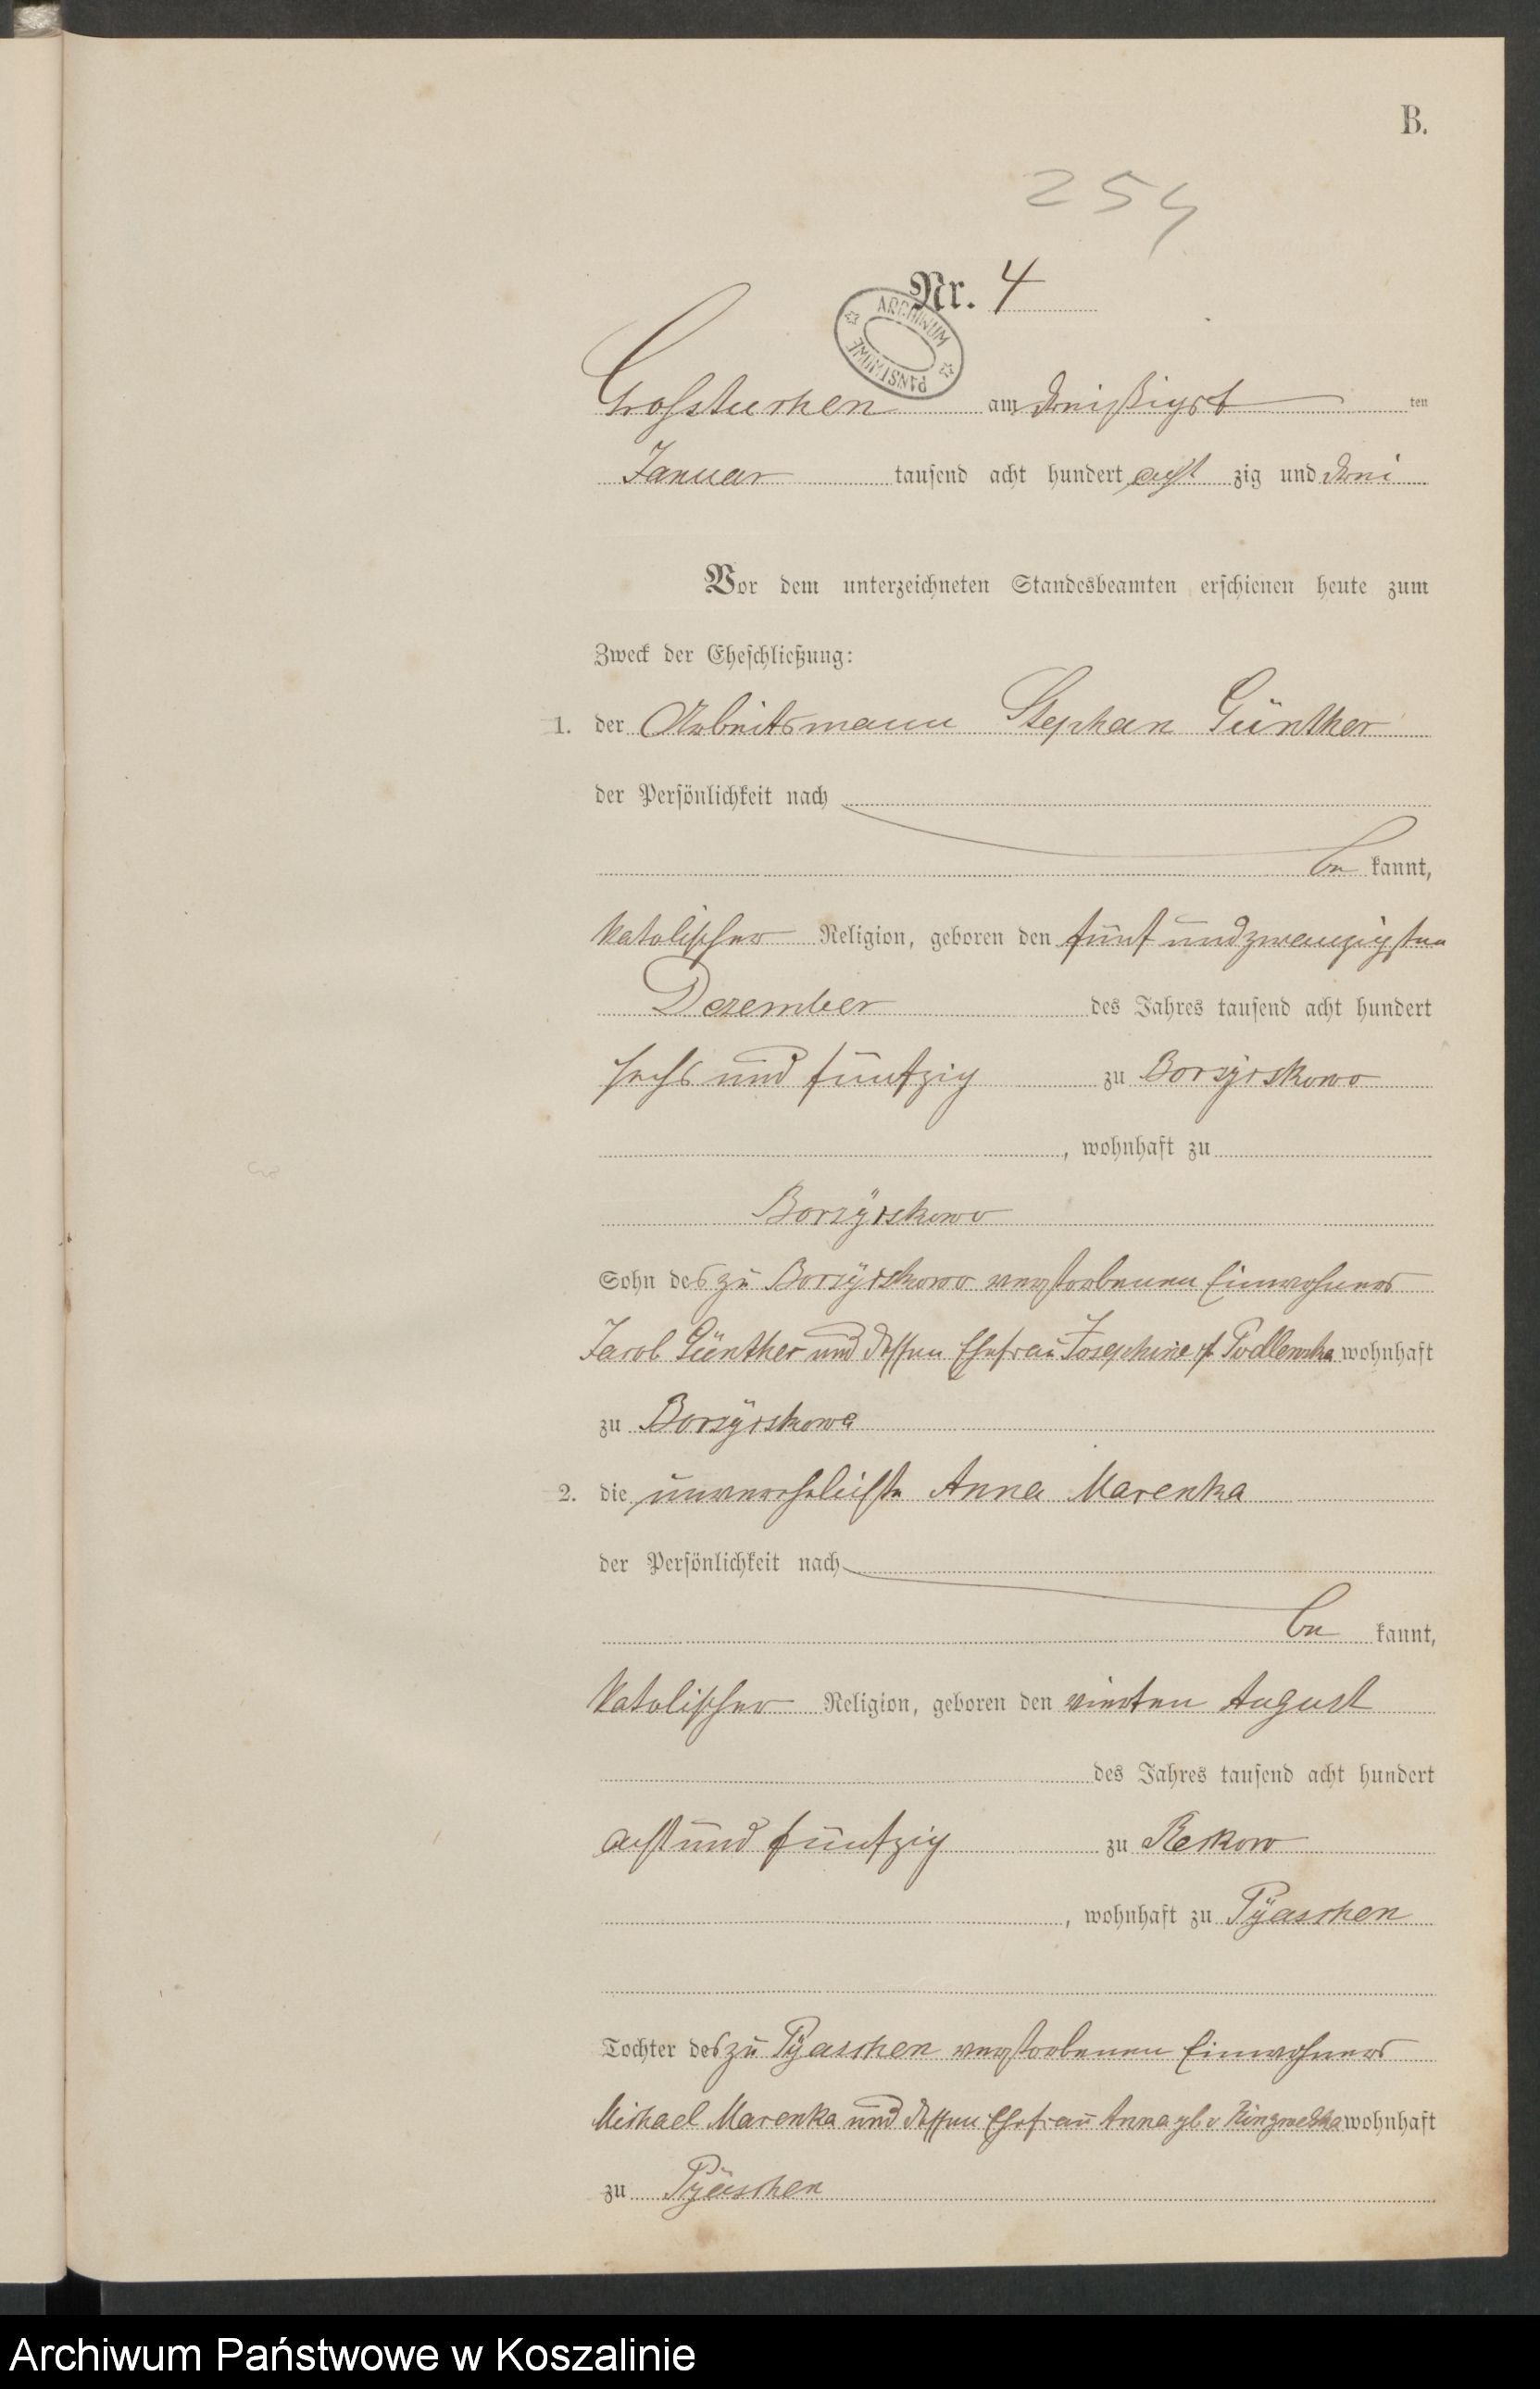 B.
254
Nr. 4
ARCHIWUM PAŃSTWOWE
Grosstuchen am dreißigst ten
Januar tausend acht hundert acht zig und drei
Vor dem unterzeichneten Standesbeamten erschienen heute zum
Zweck der Eheschließung:
1. der Arbeitsmann Stephan Günther
der Persönlichkeit nach
be kannt,
katolischer Religion, geboren den fünf und zwanzigsten
Dezember des Jahres tausend acht hundert
sechs und fünfzig zu Borzÿskowo
, wohnhaft zu
Borzÿskowo
Sohn des zu Borzÿskowo verstorbenen Einwohners
Jacob Günther und dessen Ehefrau Josephine Podlewska wohnhaft
zu Borzÿskowo
2. die unverehelichte Anna Marenka
der Persönlichkeit nach
be kannt,
katolischer Religion, geboren den vierten August
des Jahres tausend acht hundert
acht und fünfzig zu Rekow
, wohnhaft zu Pÿaschen
Tochter des zu Pÿaschen verstorbenen Einwohners
Michael Marenka und dessen Ehefrau Anna geb v wohnhaft
zu Pÿaschen
Archiwum Państwowe w Koszalinie